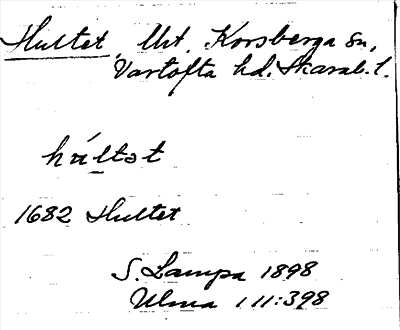 Hultet, Utr. Korsberga sn,
Vartofta hd. Skarab. l.
húltet
1682 Hultet
S. Lampa 1898
Ulma 111:398